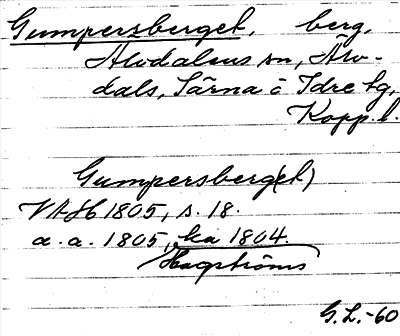 Gumpersberget, berg,
Älvdalens sn, Älv-
dals, Särna o Idre tg,
Kopp. l.
Gumpersberg(et)
VAH 1805, s. 18.
a. a. 1805, ka 1804.
Hagströms
G. L. -60